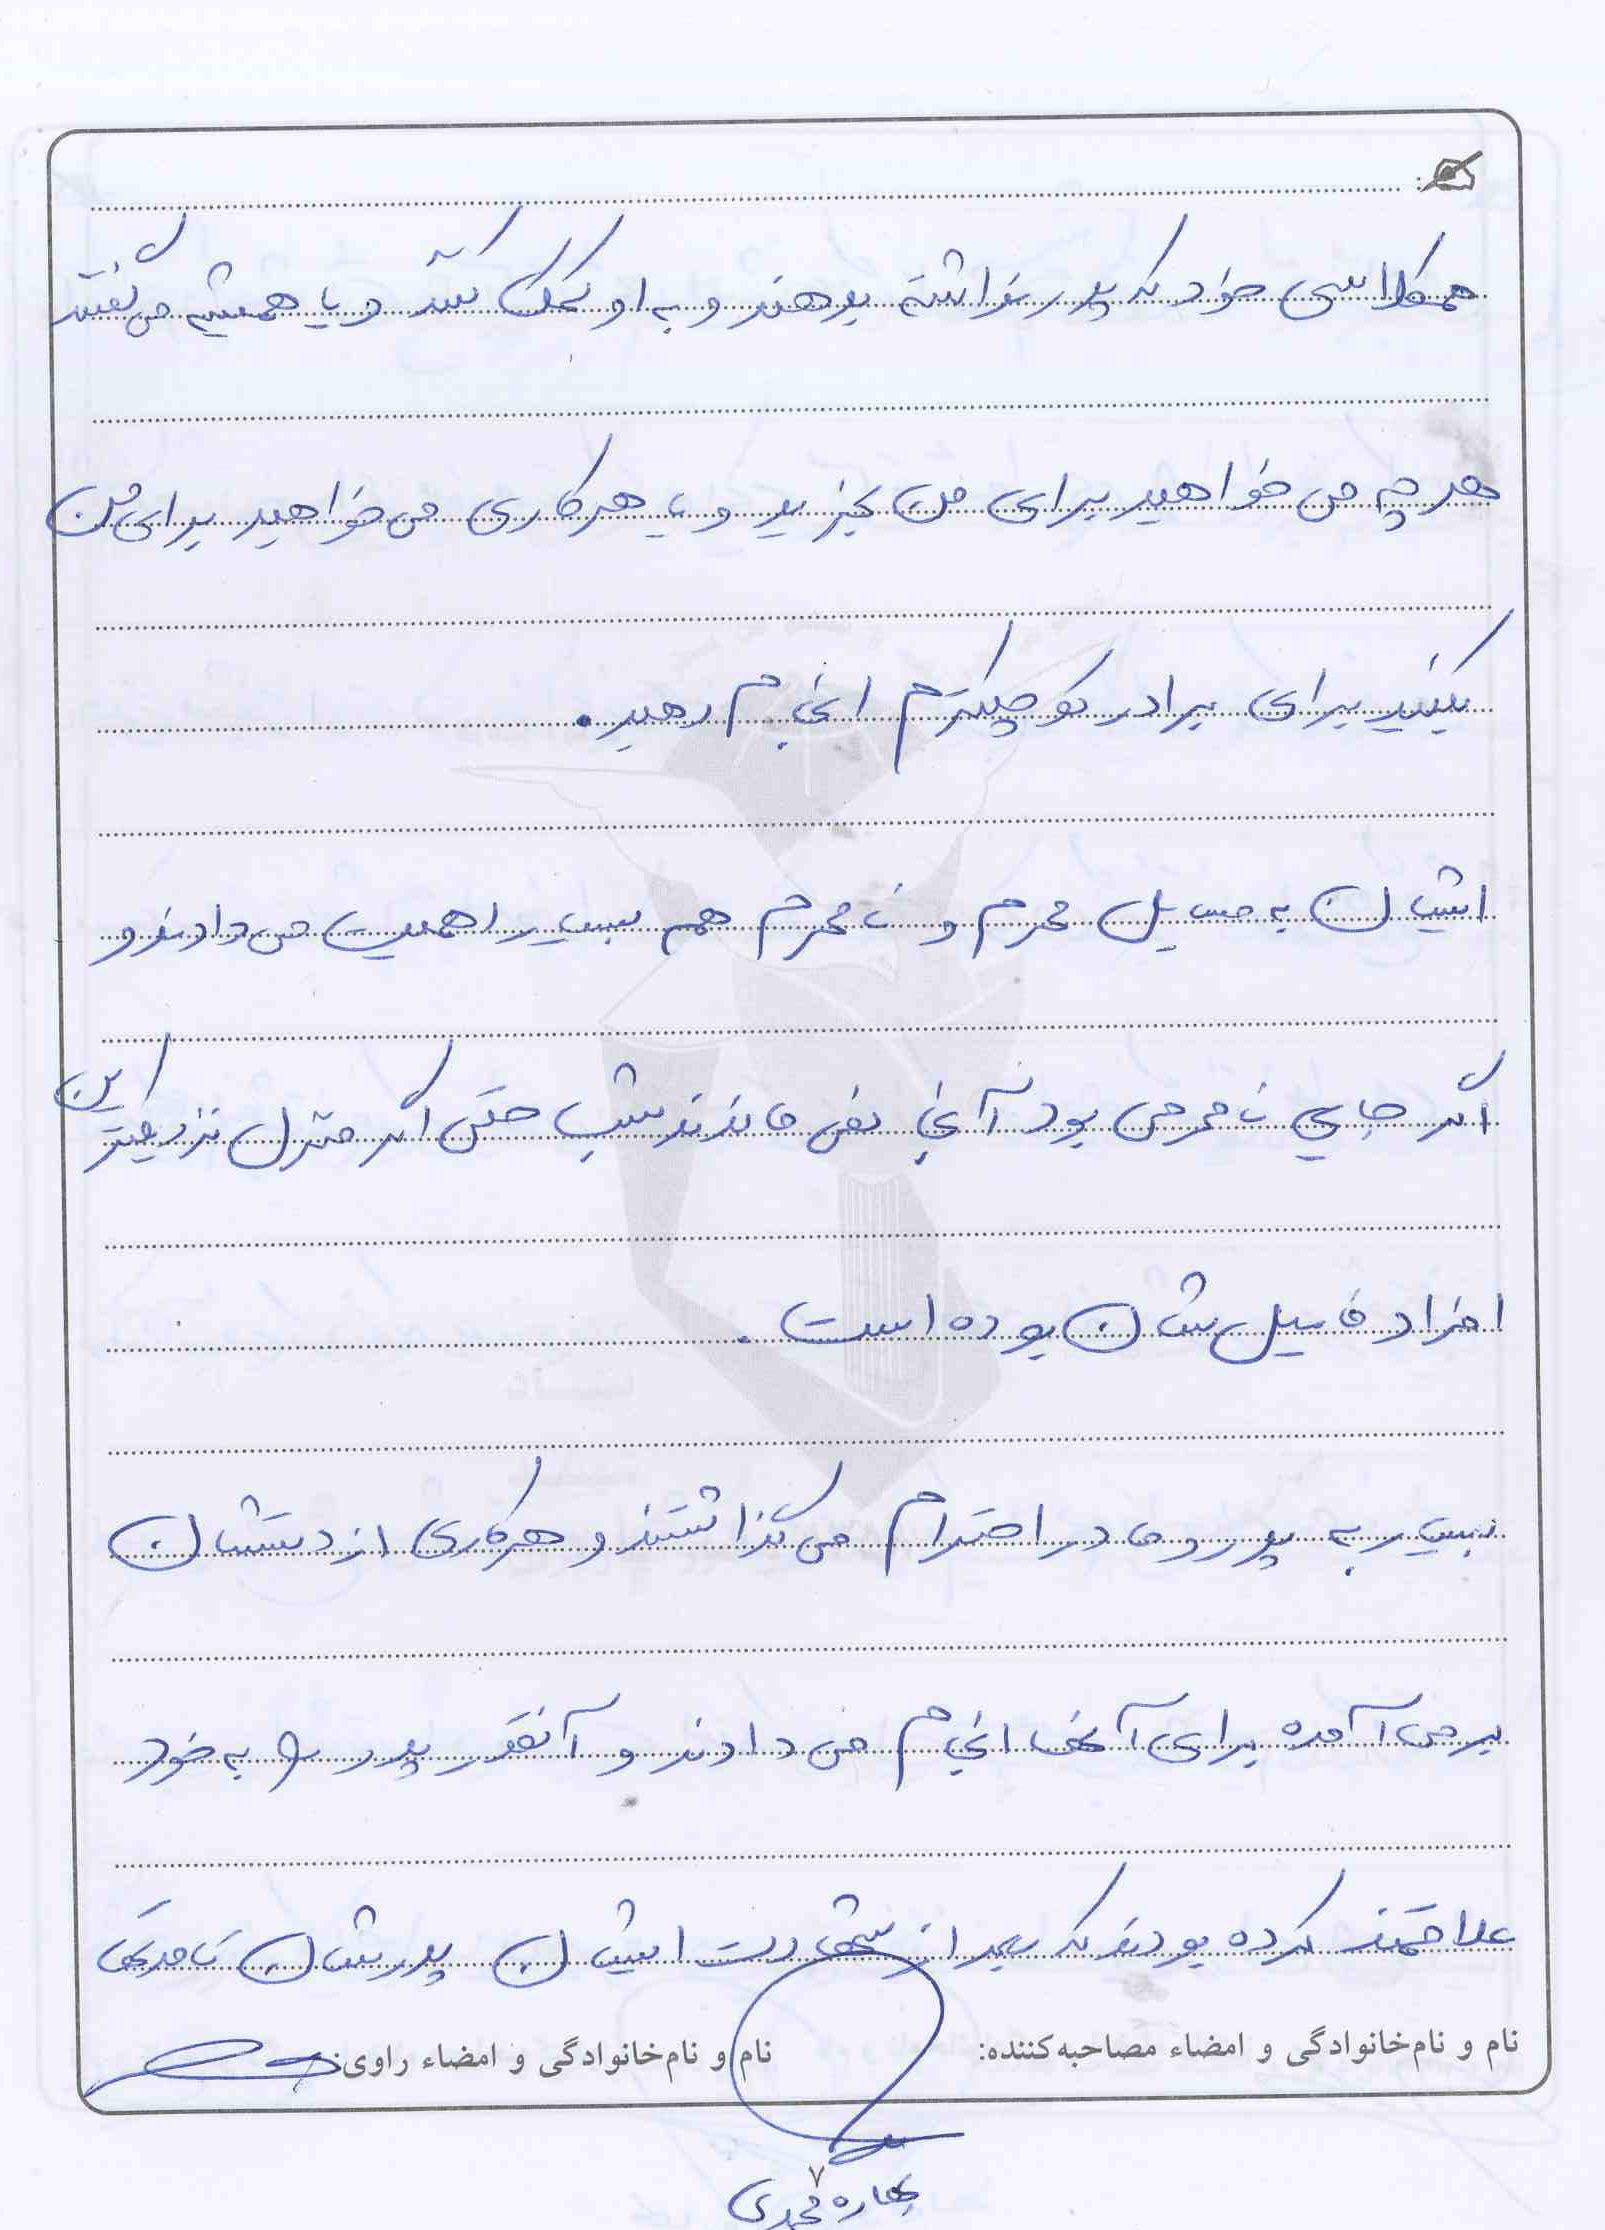 همکلاسی خود که پدر نداشته بدهند و به او کمک کنند و یا همیشه می گفتند
هر چه می خواهید برای من بخرید و یا هرکاری می خواهید برای من
بکنید برای برادر کوچکترم انجام دهید.
ایشان به مسایل محرم و نامحرم هم بسیار اهمیت می دادند و
اگر جایی نامحرمی بود آنجا نمی ماندند شب حتی اگر منزل نزدیکترین
افراد فامیلشان بوده است.
بسیار به پدر و مادر احترام می گذاشتند و هرکاری از دستشان
برمی آمده برای آنها انجام می دادند و آنقدر پدر را به خود
علاقمند کرده بودند که بعد از شهادت ایشان پدرشان تا مدتها
نام و نام‌خانوادگی و امضاء مصاحبه‌کننده:
نام و نام‌خانوادگی و امضاء راوی:
۷
بهاره محمدی